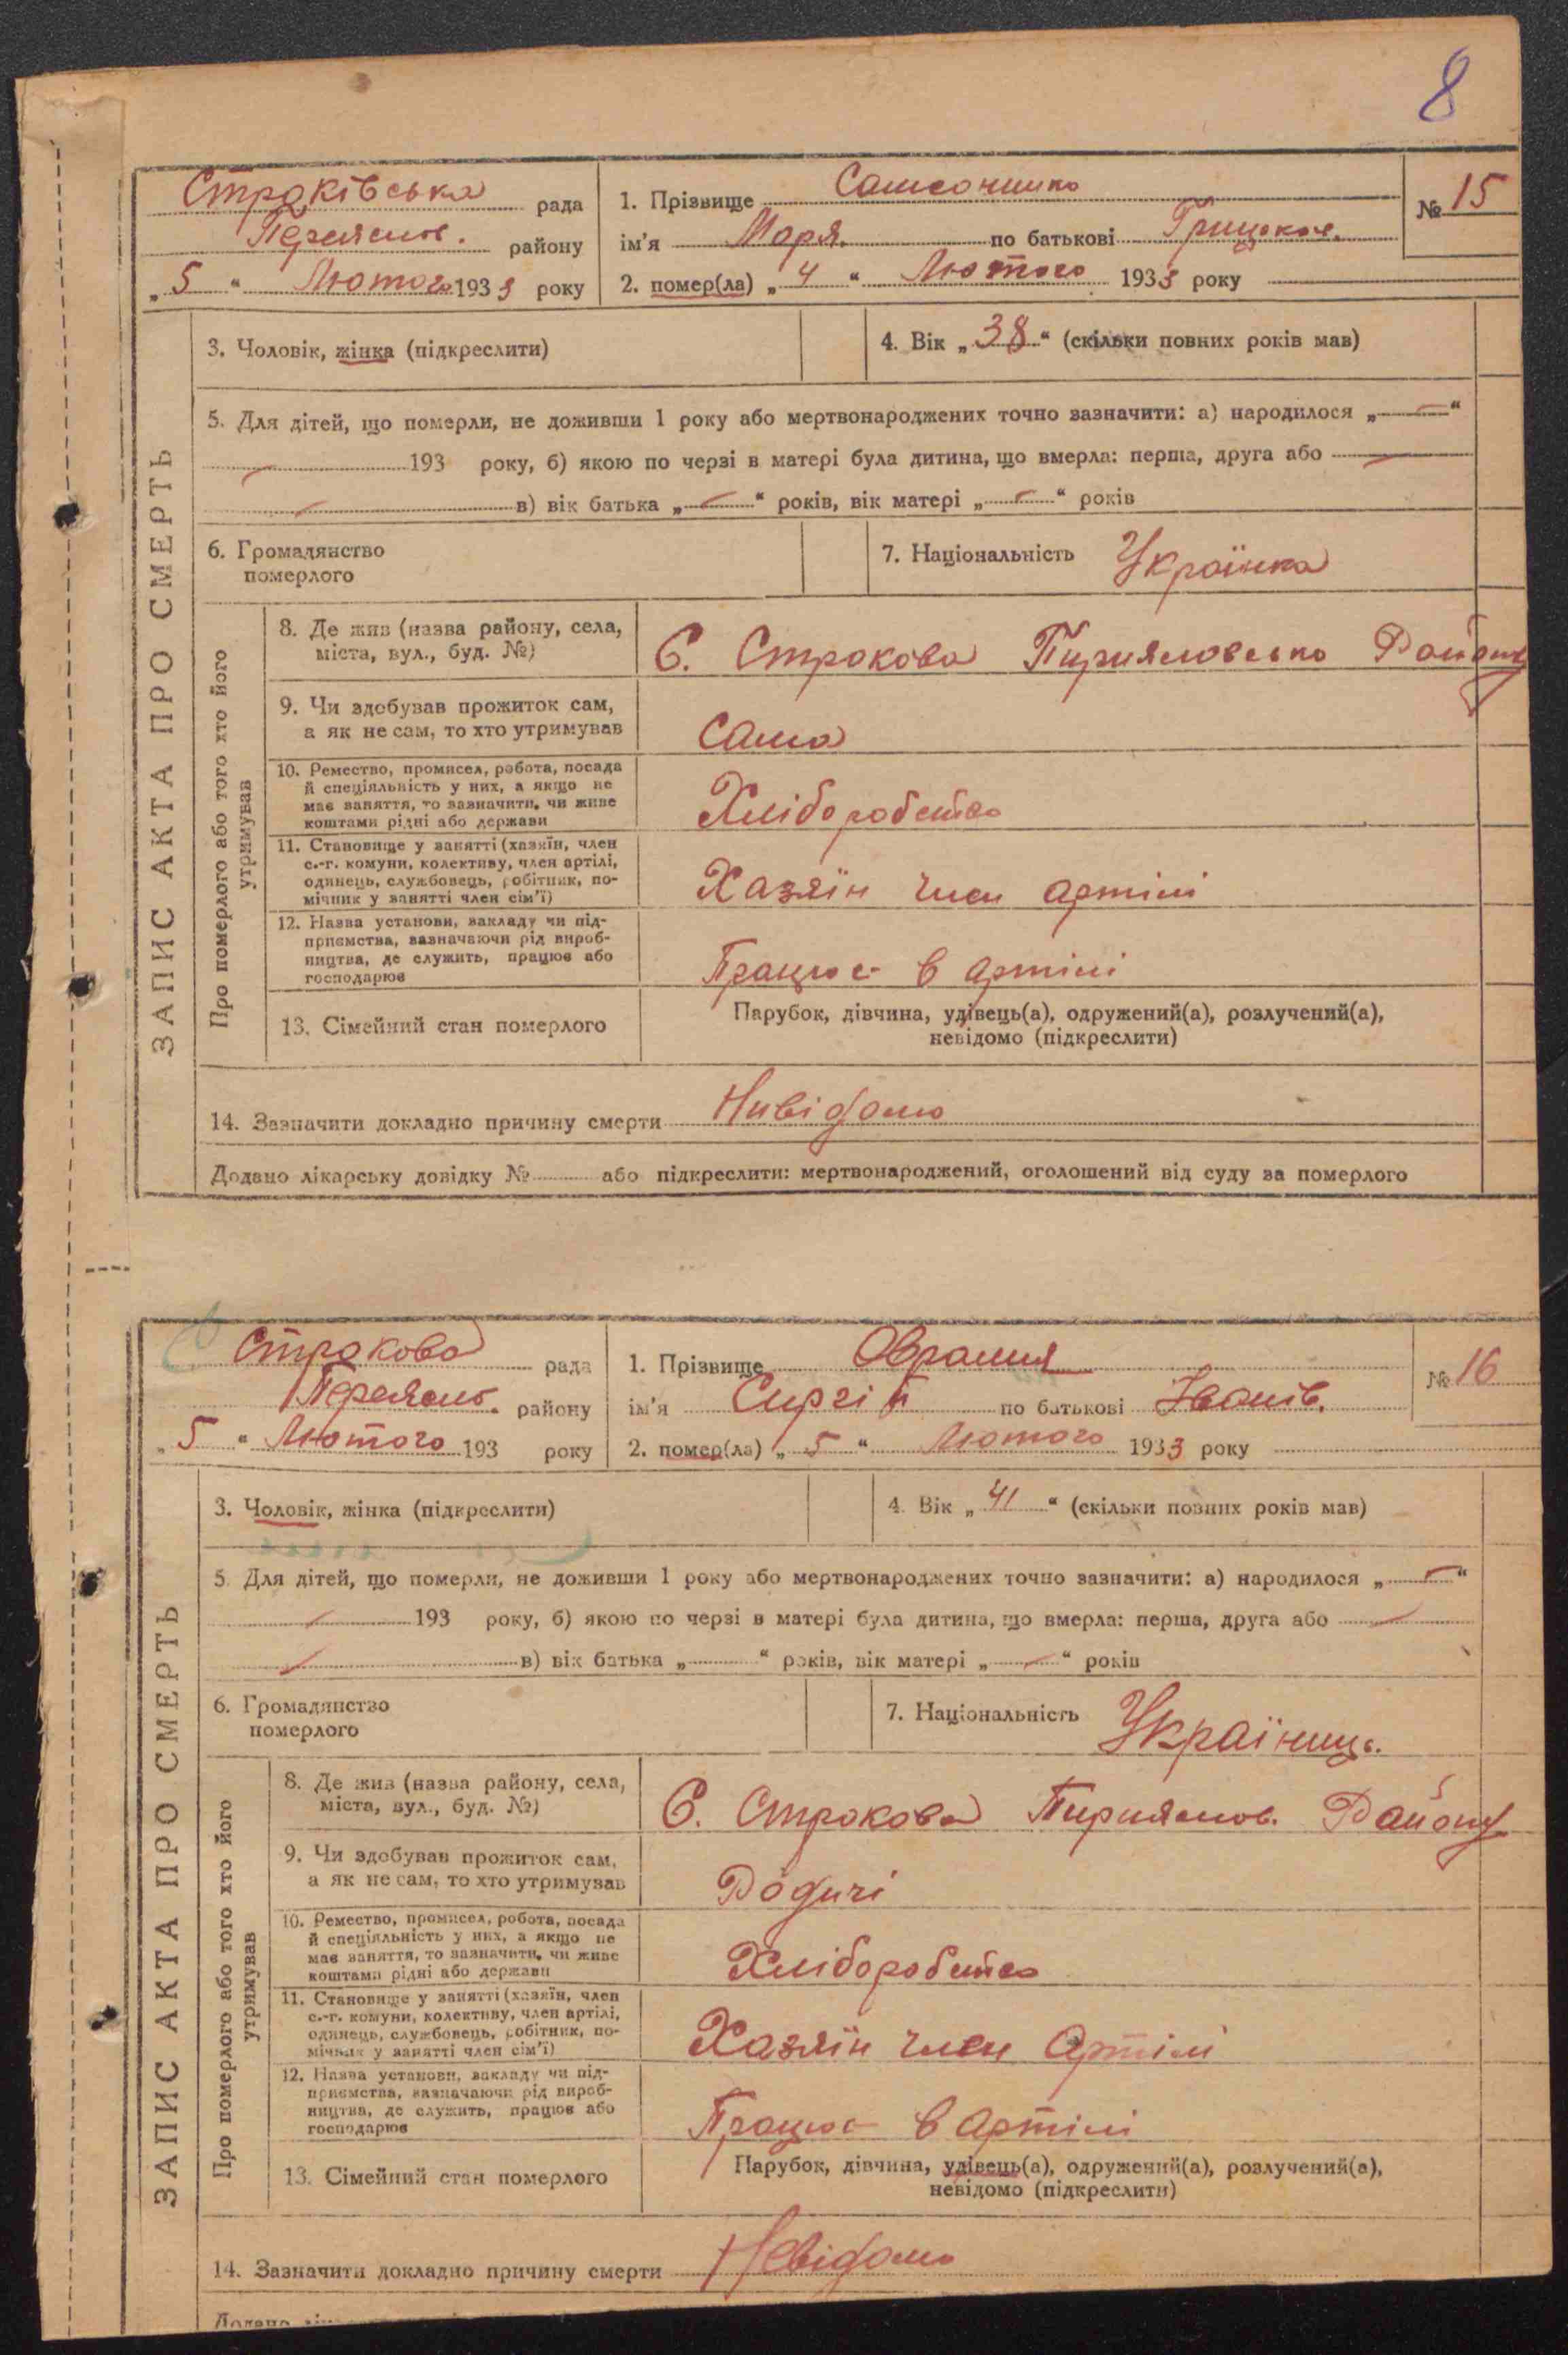 8
Строківська рада
Переяслов. району
„5“ Лютого 1933 року
1. Прізвище
№ 15
ім'я Моря по батькові
2. помер(ла) „4“ Лютого 1933 року
3. Чоловік, жінка (підкреслити)
4. Вік „38“ (скільки повних років мав)
5. Для дітей, що померли, не доживши 1 року або мертвонароджених точно зазначити: а) народилося „—“
193 року, б) якою по черзі в матері була дитина, що вмерла: перша, друга або —
в) вік батька „—“ років, вік матері „—“ років
6. Громадянство
померлого
7. Національність Українка
ЗАПИС АКТА ПРО СМЕРТЬ
Про померлого або того хто його
утримував
8. Де жив (назва району, села,
міста, вул., буд. №)
С. Строкова Пирияловсько Району
9. Чи здобував прожиток сам,
а як не сам, то хто утримував
Сама
10. Ремество, промисел, робота, посада
й спеціяльність у них, а якщо не
має заняття, то зазначити, чи живе
коштами рідні або держави
Хліборобство
11. Становище у занятті (хазяїн, член
с.-г. комуни, колективу, член артілі,
одинець, службовець, робітник, по-
мічник у занятті член сім'ї)
Хазяїн член артілі
12. Назва установи, закладу чи під-
приємства, зазначаючи рід вироб-
ництва, де служить, працює або
господарює
Працює в артілі
13. Сімейний стан померлого
Парубок, дівчина, удівець(а), одружений(а), розлучений(а),
невідомо (підкреслити)
14. Зазначити докладно причину смерти Нивідомо
Додано лікарську довідку № або підкреслити: мертвонароджений, оголошений від суду за померлого
Строкова рада
Переяслов. району
„5“ Лютого 193 року
1. Прізвище Оврамия
№ 16
ім'я Сиргій по батькові Іванів.
2. помер(ла) „5“ Лютого 1933 року
3. Чоловік, жінка (підкреслити)
4. Вік „41“ (скільки повних років мав)
5. Для дітей, що померли, не доживши 1 року або мертвонароджених точно зазначити: а) народилося „—“
193 року, б) якою по черзі в матері була дитина, що вмерла: перша, друга або —
в) вік батька „“ років, вік матері „—“ років
6. Громадянство
померлого
7. Національність Україниць.
ЗАПИС АКТА ПРО СМЕРТЬ
Про померлого або того хто його
утримував
8. Де жив (назва району, села,
міста, вул., буд. №)
С. Строкова Пириялов. Району
9. Чи здобував прожиток сам,
а як не сам, то хто утримував
Родичі
10. Ремество, промисел, робота, посада
й спеціяльність у них, а якщо не
має заняття, то зазначити, чи живе
коштами рідні або держави
Хліборобство
11. Становище у занятті (хазяїн, член
с.-г. комуни, колективу, член артілі,
одинець, службовець, робітник, по-
мічник у занятті член сім'ї)
Хазяїн член Артілі
12. Назва установи, закладу чи під-
приємства, зазначаючи рід вироб-
ництва, де служить, працює або
господарює
Працює в Артілі
13. Сімейний стан померлого
Парубок, дівчина, удівець(а), одружений(а), розлучений(а),
невідомо (підкреслити)
14. Зазначити докладно причину смерти Невідомо